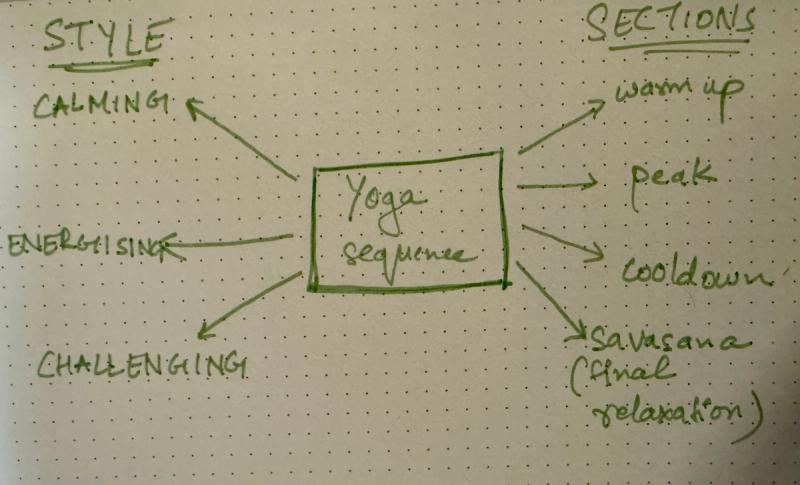 STYLE
CALMING
ENERGISING
CHALLENGING
Yoga
sequence
SECTIONS
warm up
peak
cooldown
Savasana
(final
relaxation)